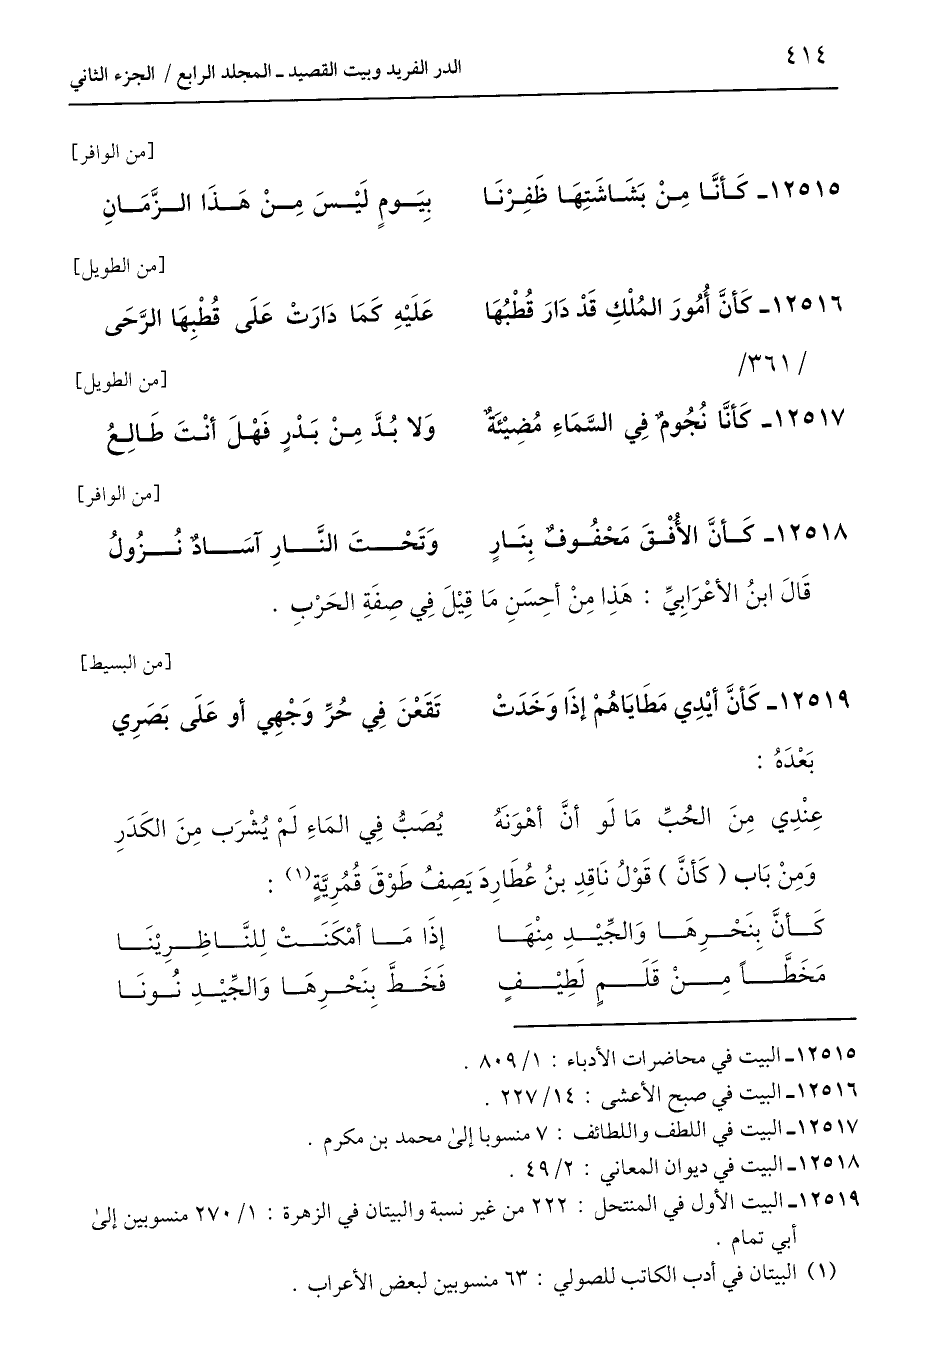 ٤١٤
الدر الفريد وبيت القصيد ــ المجلد الرابع / الجزء الثاني
[من الوافر]
١٢٥١٥ـ كَـأنَّـا مِـنْ بَشَـاشَتِهَـا ظَفِـرْنَـا بِيَـومٍ لَيْـسَ مِـنْ هَـذَا الـزَّمَـانِ
[من الطويل]
١٢٥١٦ـ كَأنَّ أُمُورَ المُلْكِ قَدْ دَارَ قُطْبُهَا عَلَيْهِ كَمَا دَارَتْ عَلَى قُطْبِهَا الرَّحَى
/ ٣٦١/
[من الطويل]
١٢٥١٧ـ كَأنَّا نُجُومٌ فِي السَّمَاءِ مُضِيْئَةٌ وَلا بُدَّ مِنْ بَدْرٍ فَهْلَ أنْتَ طَالِعُ
[من الوافر]
١٢٥١٨ـ كَـأنَّ الأُفْـقَ مَحْفُـوفٌ بِنَـارٍ وَتَحْـتَ النَّـارِ آسَـادٌ نُـزُولُ
قَالَ ابنُ الأعْرَابِيِّ : هَذَا مِنْ أحِسَنِ مَا قِيْلَ فِي صِفَةِ الحَرْبِ .
[من البسيط]
١٢٥١٩ـ كَأنَّ أيْدِي مَطَايَاهُمْ إذَا وَخَدَتْ تَقَعْنَ فِي حُرِّ وَجْهِي أو عَلَى بَصَرِي
بَعْدَهُ :
عِنْدِي مِنَ الحُبِّ مَا لَو أنَّ أهْوَنَهُ يُصَبُّ فِي المَاءِ لَمْ يُشْرَب مِنَ الكَدَرِ
وَمِنْ بَاب ( كَأنَّ ) قَوْلُ نَاقِدِ بنُ عُطَارِدَ يَصِفُ طَوْقَ قُمُرِيَّةٍ(١) :
كَـأنَّ بِنَحْـرِهَـا وَالجِّيْـدِ مِنْهَـا إذَا مَـا أمْكَنَـتْ لِلنَّـاظِـرِيْنَـا
مَخَطَّـاً مِـنْ قَلَـمٍ لَطِيْـفٍ فَخَـطَّ بِنَحْـرِهَـا وَالجِّيْـدِ نُـونَـا
١٢٥١٥ـ البيت في محاضرات الأدباء : ١/ ٨٠٩ .
١٢٥١٦ـ البيت في صبح الأعشى : ١٤/ ٢٢٧ .
١٢٥١٧ـ البيت في اللطف واللطائف : ٧ منسوبا إلىٰ محمد بن مكرم .
١٢٥١٨ـ البيت في ديوان المعاني : ٢/ ٤٩ .
١٢٥١٩ـ البيت الأول في المنتحل : ٢٢٢ من غير نسبة والبيتان في الزهرة : ١/ ٢٧٠ منسوبين إلىٰ
أبي تمام .
(١) البيتان في أدب الكاتب للصولي : ٦٣ منسوبين لبعض الأعراب .